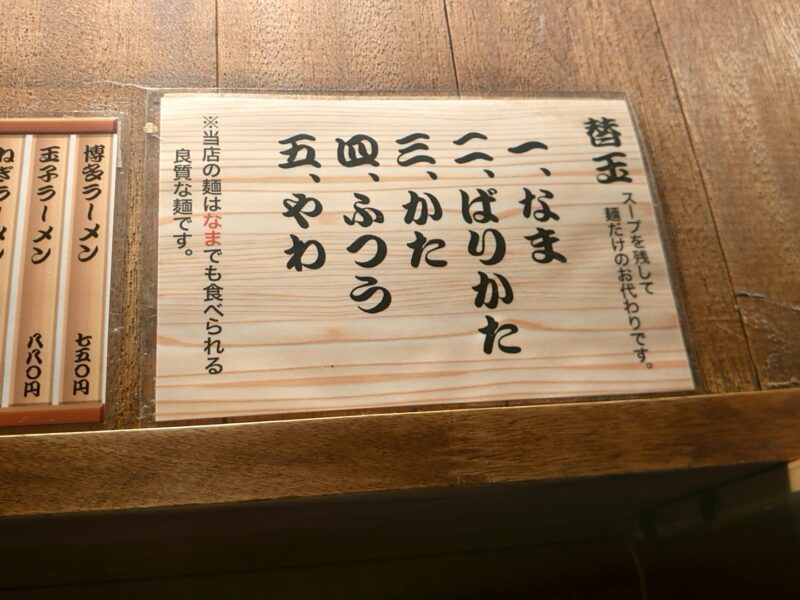 替玉
スープを残して
麺だけのお代わりです。
一、なま
二、ばりかた
三、かた
四、ふつう
五、やわ
※当店の麺はなまでも食べられる
良質な麺です。
博多ラーメン 七五〇円
玉子ラーメン 八八〇円
ねぎラーメン